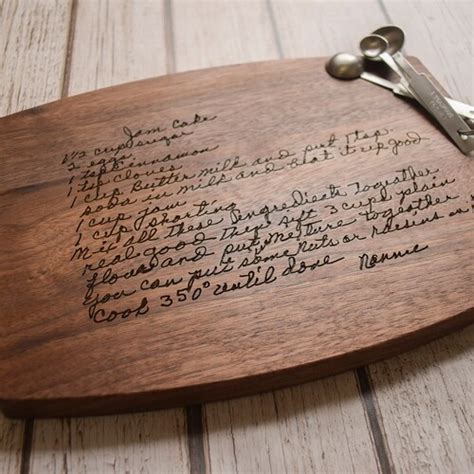 Jam Cake
1 1/2 cup sugar
2 eggs
1 tsp cinnamon
1 tsp cloves
1 cup Butter milk and put 1 tsp
soda in milk and Beat it up good
1 cup jam
1 cup shorting
Mix all these Ingredients together
real good then sift 3 cups plain
flour and put mixture together
you can put some nuts or raisens in it
Cook 350° until done Nannie